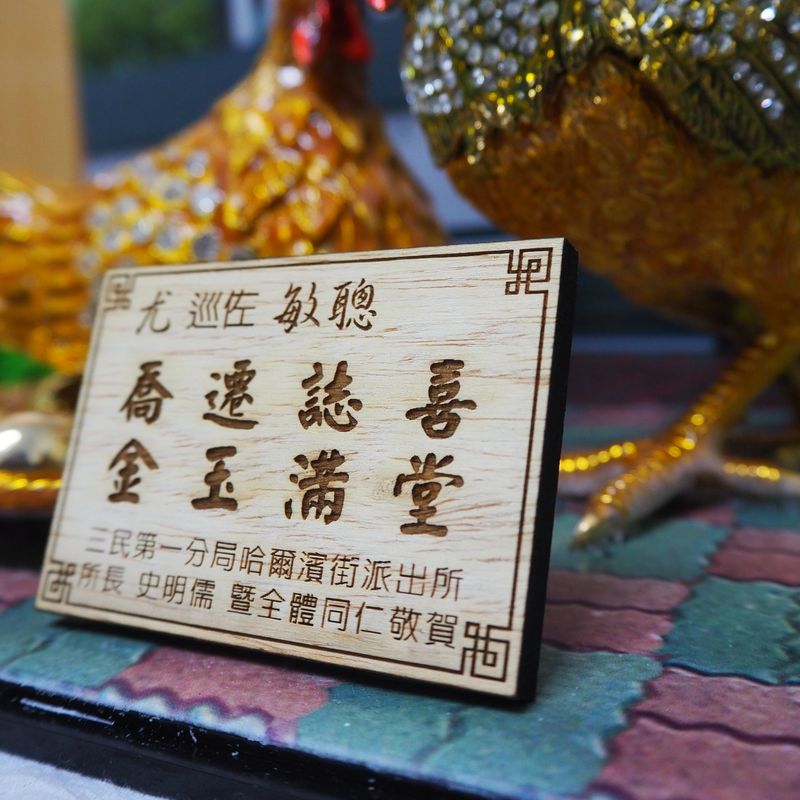 尤 巡佐 敏聰
喬遷誌喜
金玉滿堂
三民第一分局哈爾濱街派出所
所長 史明儒 暨全體同仁敬賀